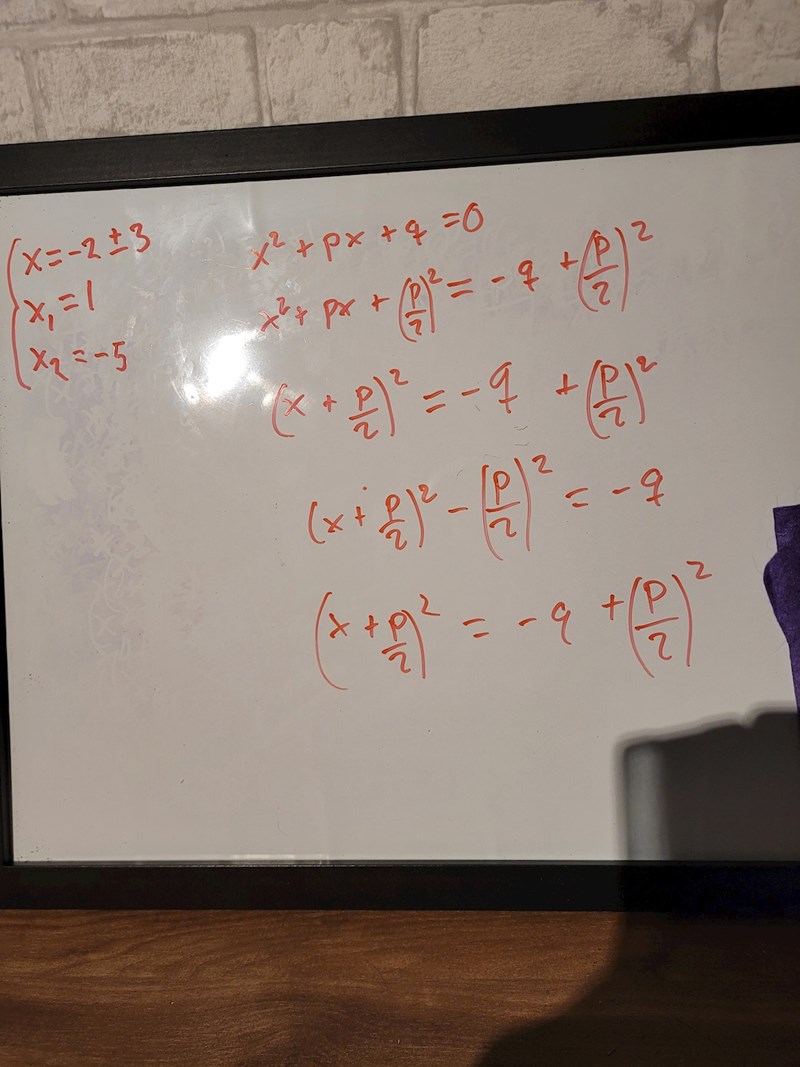 x = -2 ± 3
x₁ = 1
x₂ = -5
x² + px + q = 0
x² + px + (p/2)² = -q + (p/2)²
(x + p/2)² = -q + (p/2)²
(x + p/2)² - (p/2)² = -q
(x + p/2)² = -q + (p/2)²